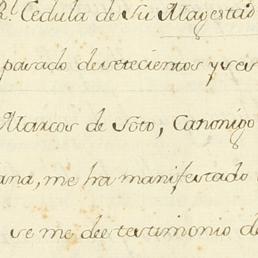 Rl. Cedula de Su Magestad
pasado de setecientos y seis
Marcos de Soto, Canonigo
ana, me ha manifestado
se me dee testimonio de